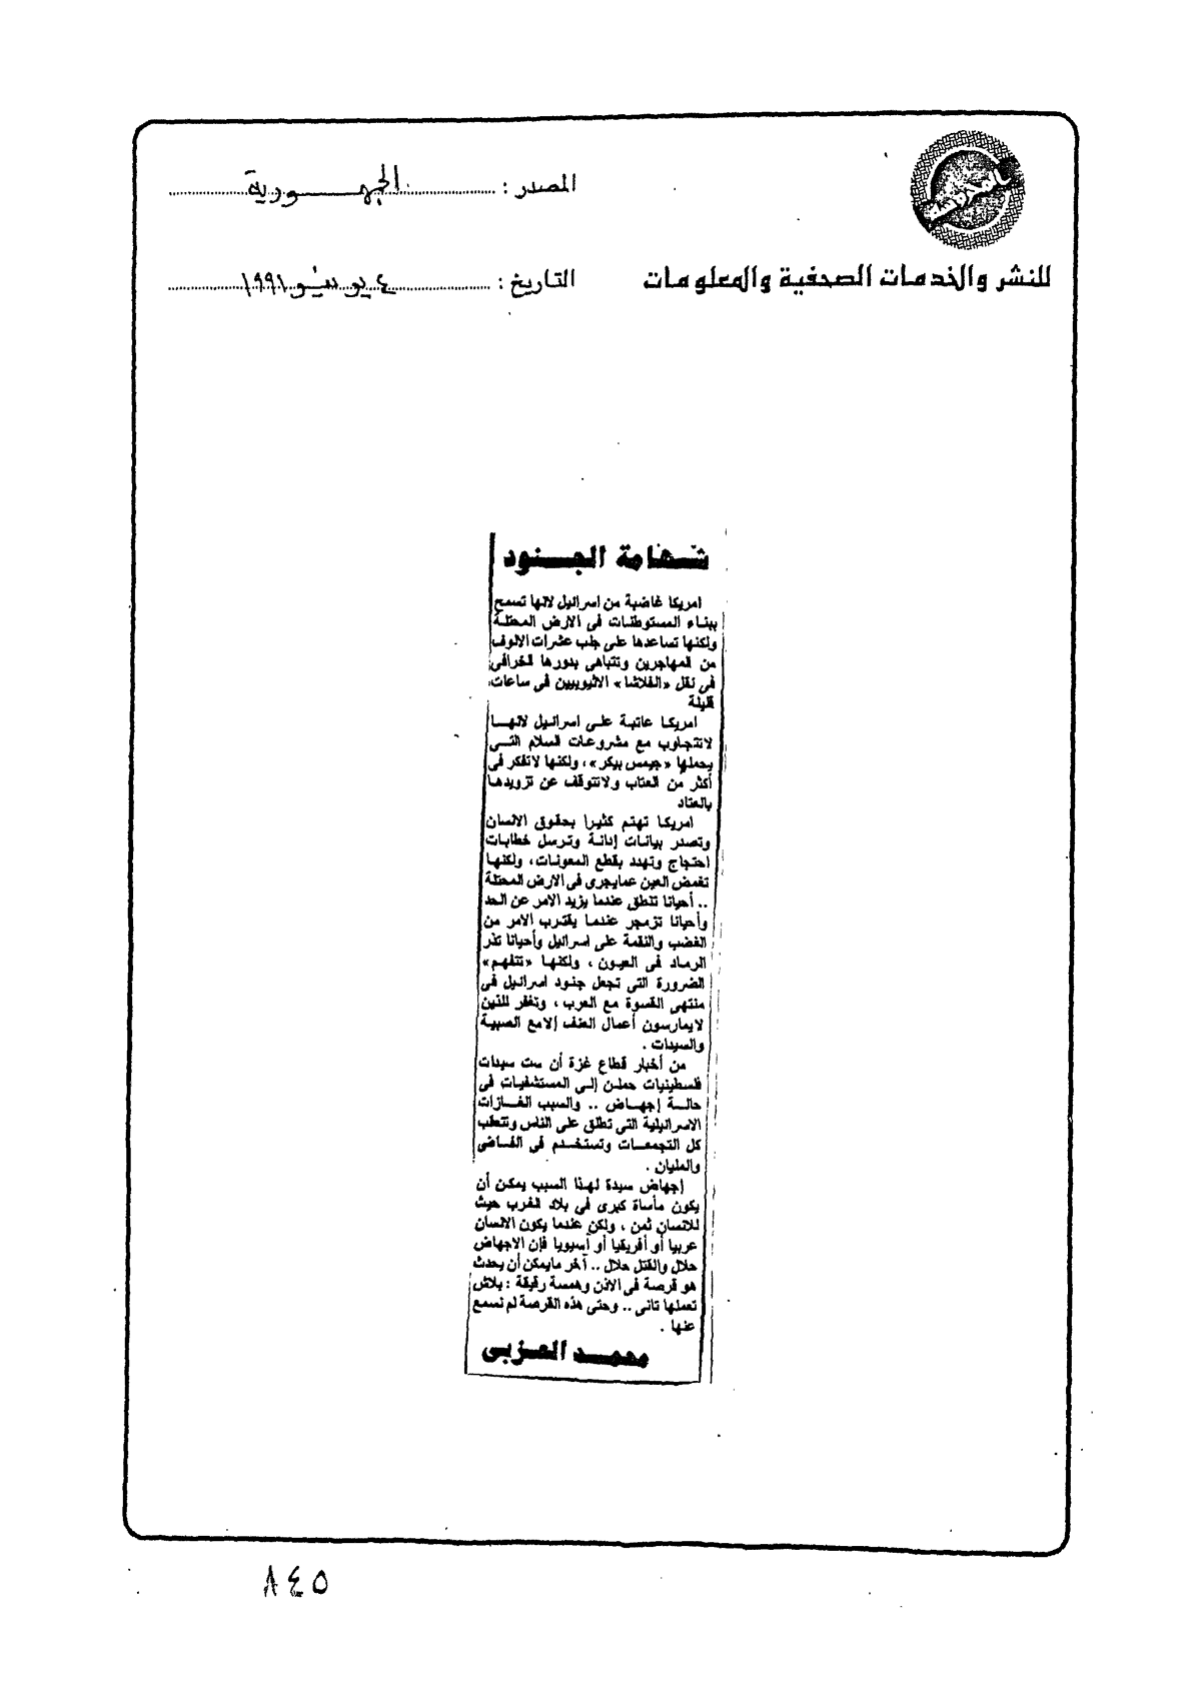 المصدر : الجمهورية
للنشر والخدمات الصحفية والمعلومات
التاريخ : ٤ يونيو ١٩٩١
شهامة الجنود
امريكا غاضبة من اسرائيل لانها تسمح
ببناء المستوطنات فى الارض المحتلة
ولكنها تساعدها على جلب عشرات الالوف
من المهاجرين وتتباهى بدورها الخرافى
فى نقل «الفلاشا» الاثيوبيين فى ساعات
قليلة
امريكا عاتبة على اسرائيل لانها
لاتتجاوب مع مشروعات السلام التى
يحملها «جيمس بيكر» ، ولكنها لاتفكر فى
أكثر من العتاب ولاتتوقف عن تزويدها
بالعتاد
امريكا تهتم كثيرا بحقوق الانسان
وتصدر بيانات إدانة وترسل خطابات
احتجاج وتهدد بقطع المعونات ، ولكنها
تغمض العين عمايجرى فى الارض المحتلة
.. أحيانا تنطق عندما يزيد الامر عن الحد
وأحيانا تزمجر عندما يقترب الامر من
الغضب والنقمة على اسرائيل وأحيانا تذر
الرماد فى العيون ، ولكنها «تتفهم»
الضرورة التى تجعل جنود اسرائيل فى
منتهى القسوة مع العرب ، وتغفر للذين
لايمارسون أعمال العنف إلامع الصبية
والسيدات .
من أخبار قطاع غزة أن ست سيدات
فلسطينيات حملن إلى المستشفيات فى
حالة إجهاض .. والسبب الغازات
الاسرائيلية التى تطلق على الناس وتتعقب
كل التجمعات وتستخدم فى الفاضى
والمليان .
إجهاض سيدة لهذا السبب يمكن أن
يكون مأساة كبرى فى بلاد الغرب حيث
للانسان ثمن ، ولكن عندما يكون الانسان
عربيا أو أفريقيا أو آسيويا فإن الاجهاض
حلال والقتل حلال .. آخر مايمكن أن يحدث
هو قرصة فى الاذن وهمسة رقيقة : بلاش
تعملها تانى .. وحتى هذه القرصة لم نسمع
عنها .
محمد العزبى
٨٤٥